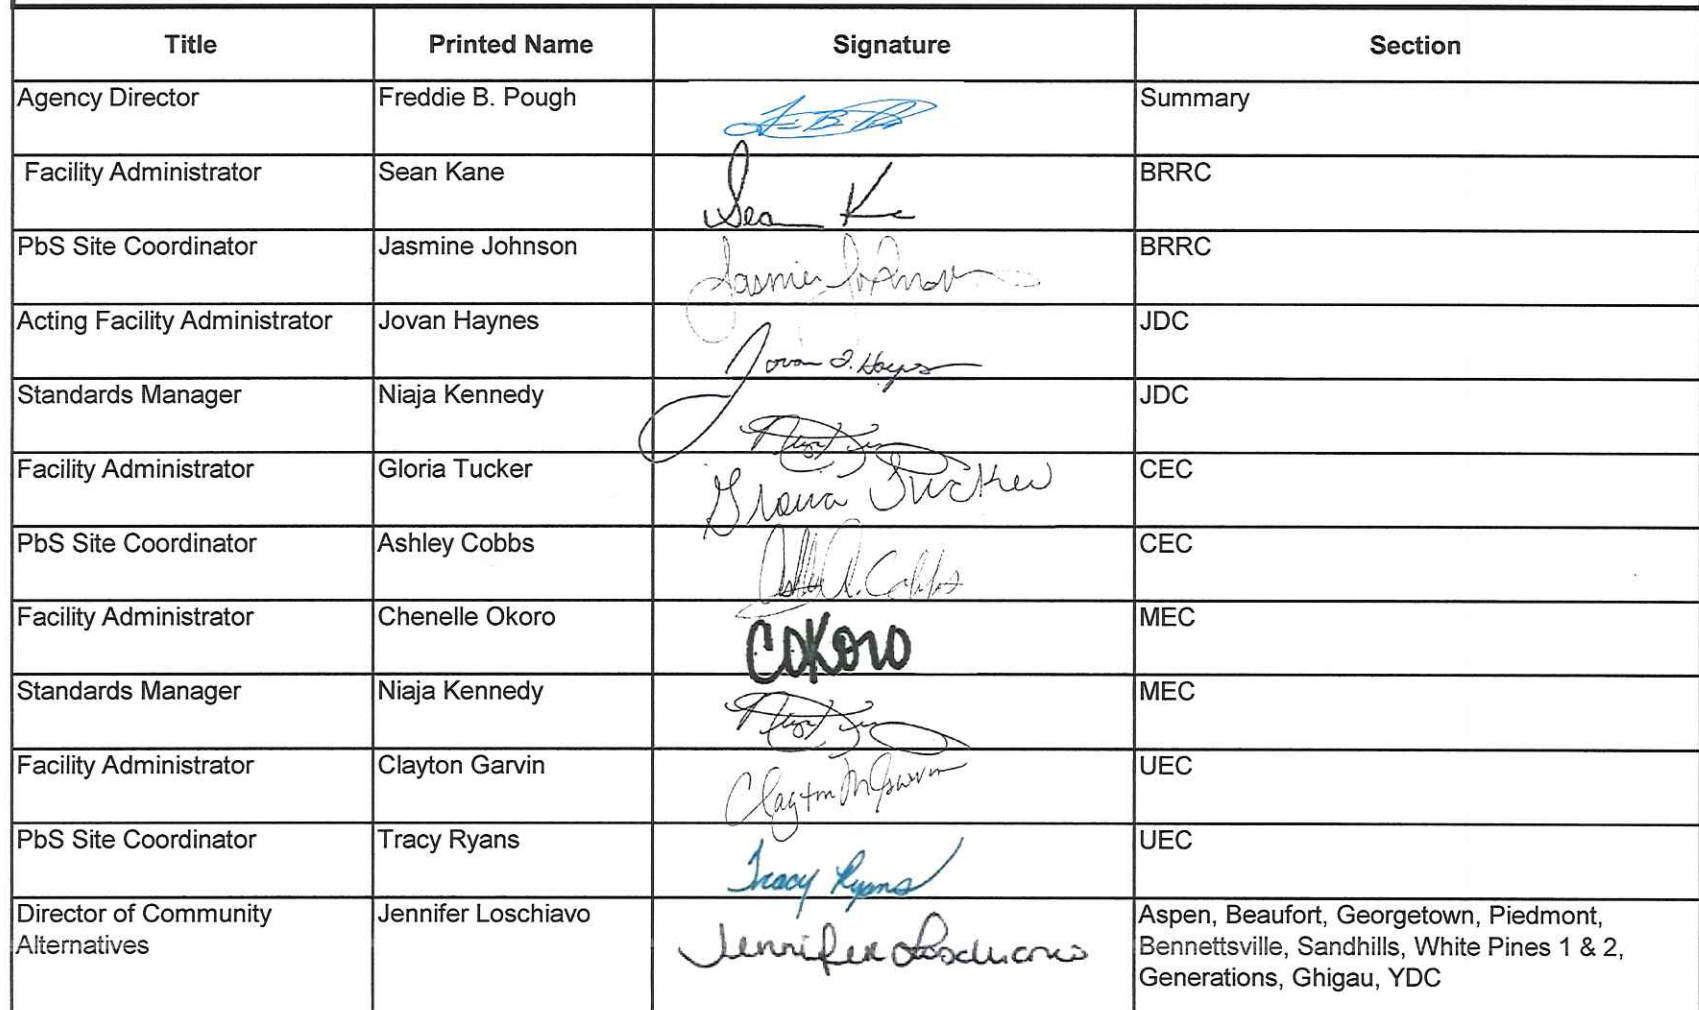 Title Printed Name Signature Section
Agency Director Freddie B. Pough Summary
Facility Administrator Sean Kane Sean K BRRC
PbS Site Coordinator Jasmine Johnson Jasmine Johnson BRRC
Acting Facility Administrator Jovan Haynes Jovan Haynes JDC
Standards Manager Niaja Kennedy JDC
Facility Administrator Gloria Tucker Gloria Tucker CEC
PbS Site Coordinator Ashley Cobbs Cobbs CEC
Facility Administrator Chenelle Okoro COKORO MEC
Standards Manager Niaja Kennedy MEC
Facility Administrator Clayton Garvin Clayton M Garvin UEC
PbS Site Coordinator Tracy Ryans Tracy Ryans UEC
Director of Community Jennifer Loschiavo Jennifer Loschiavo Aspen, Beaufort, Georgetown, Piedmont,
Alternatives Bennettsville, Sandhills, White Pines 1 & 2,
Generations, Ghigau, YDC